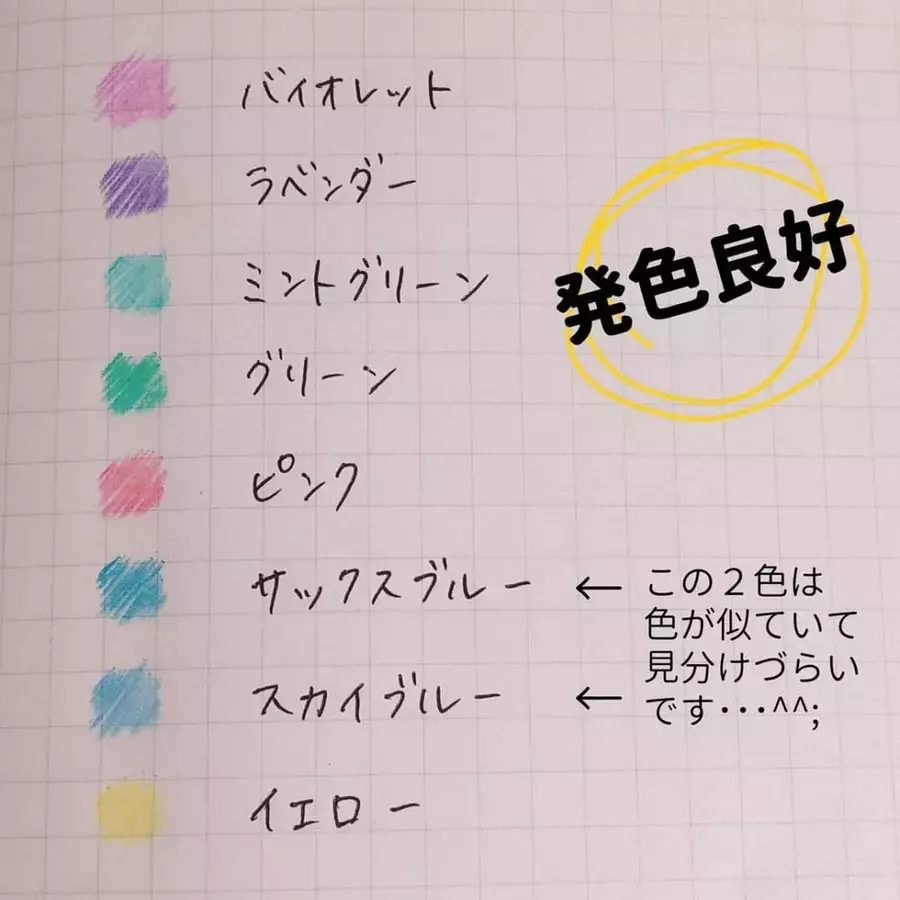 バイオレット
ラベンダー
ミントグリーン
発色良好
グリーン
ピンク
サックスブルー
スカイブルー
← この２色は
色が似ていて
見分けづらい
← です･･･^^;
イエロー